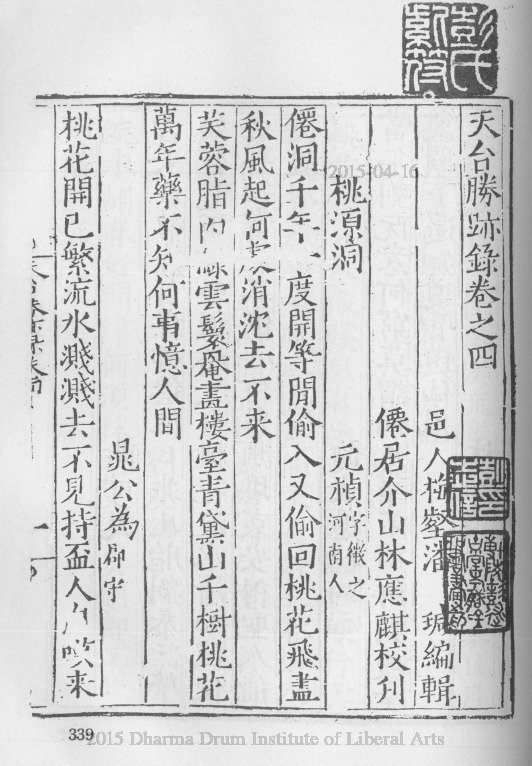 天台勝跡錄卷之四
邑人 壑潘 編輯
僊居介山林應麒校刋
桃源洞
元楨字微之河南人
僊洞千年一度開等閒偷入又偷回桃花飛盡
秋風起何 消沈去不来
芙蓉脂肉 雲鬟 畫樓臺青黛山千樹桃花
萬年藥不知何事憶人間
晁公為郡守
桃花開已繁流水濺濺去不見持盃人 唉来
一
彭氏
339
2015-04-16
2015 Dharma Drum Institute of Liberal Arts